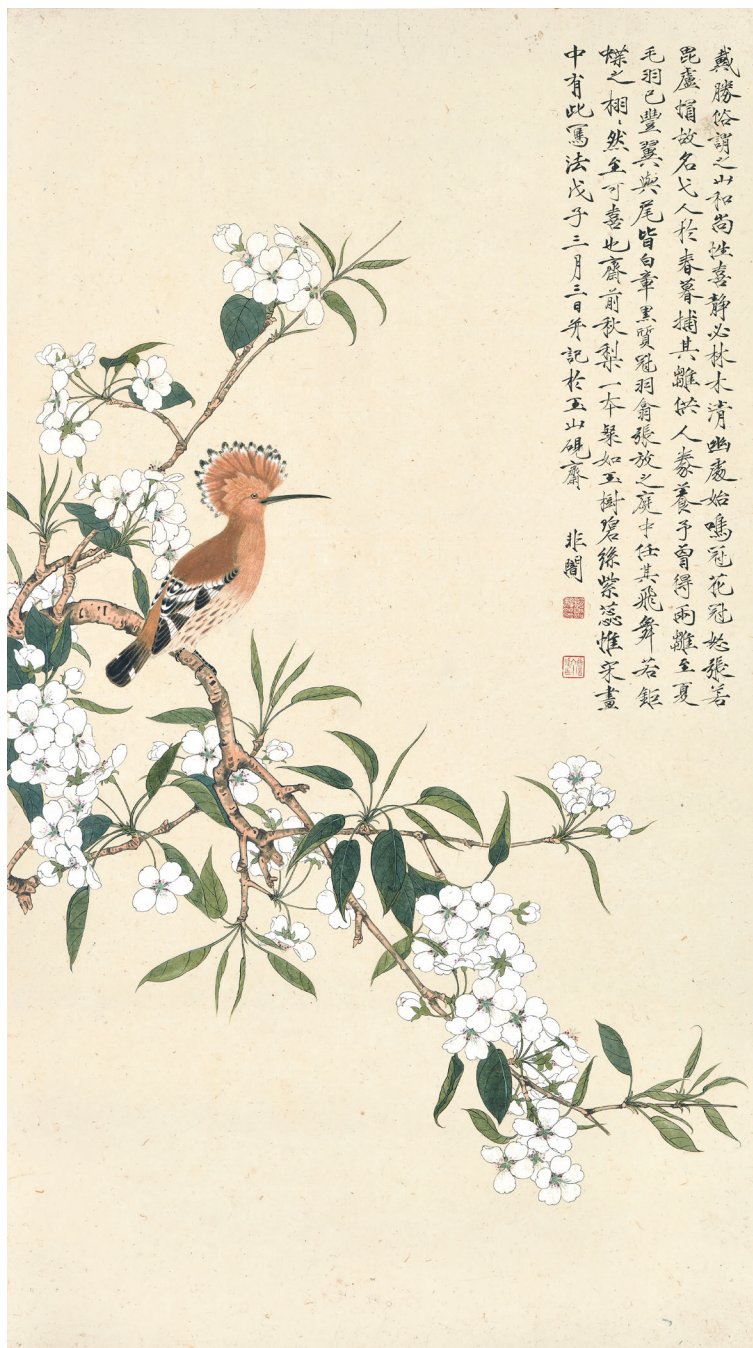 戴勝俗謂之山和尚性喜靜必林木清幽處始鳴冠花冠怒張若
毘盧帽故名弋人於春暮捕其雛供人豢養予曾得兩雛至夏
毛羽已豐翼與尾皆白章黑質冠羽翕張放之庭中任其飛舞若鉅
蝶之栩〻然至可喜也齋前秋梨一本粲如玉樹碧絲紫蕊惟宋畫
中有此寫法戊子三月三日并記於玉山硯齋
非闇